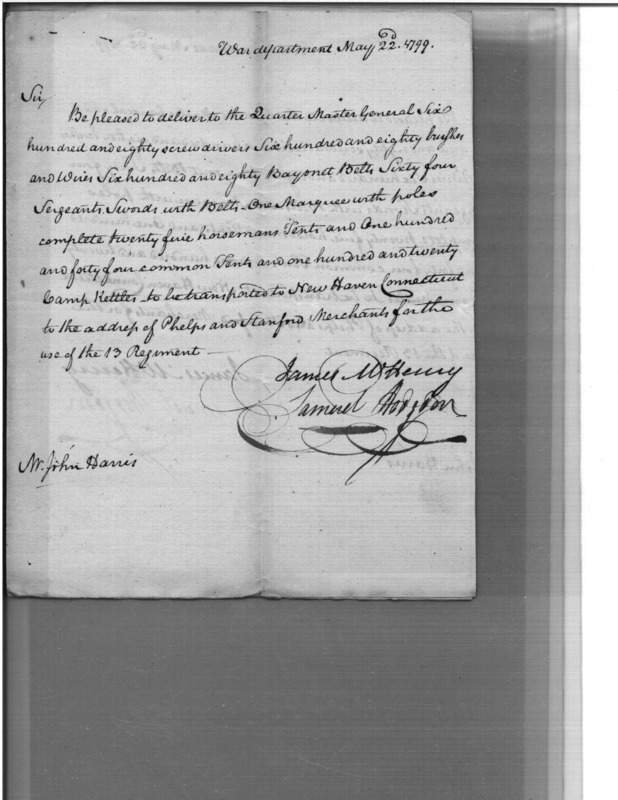 War department May 22d. 1799.
Sir,
Be pleased to deliver to the Quarter Master General Six
hundred and eighty screw drivers Six hundred and eighty brushes
and Wires Six hundred and eighty Bayonet Belts Sixty four
Sergeants Swords with Belts - One Marquee with poles
complete twenty five horsemans Tents and One hundred
and forty four common Tents and one hundred and twenty
Camp Kettles to be transported to New Haven Connecticut
to the address of Phelps and Stanford Merchants for the
use of the 13 Regiment
James McHenry
Samuel Hodgdon
Mr. John Harris